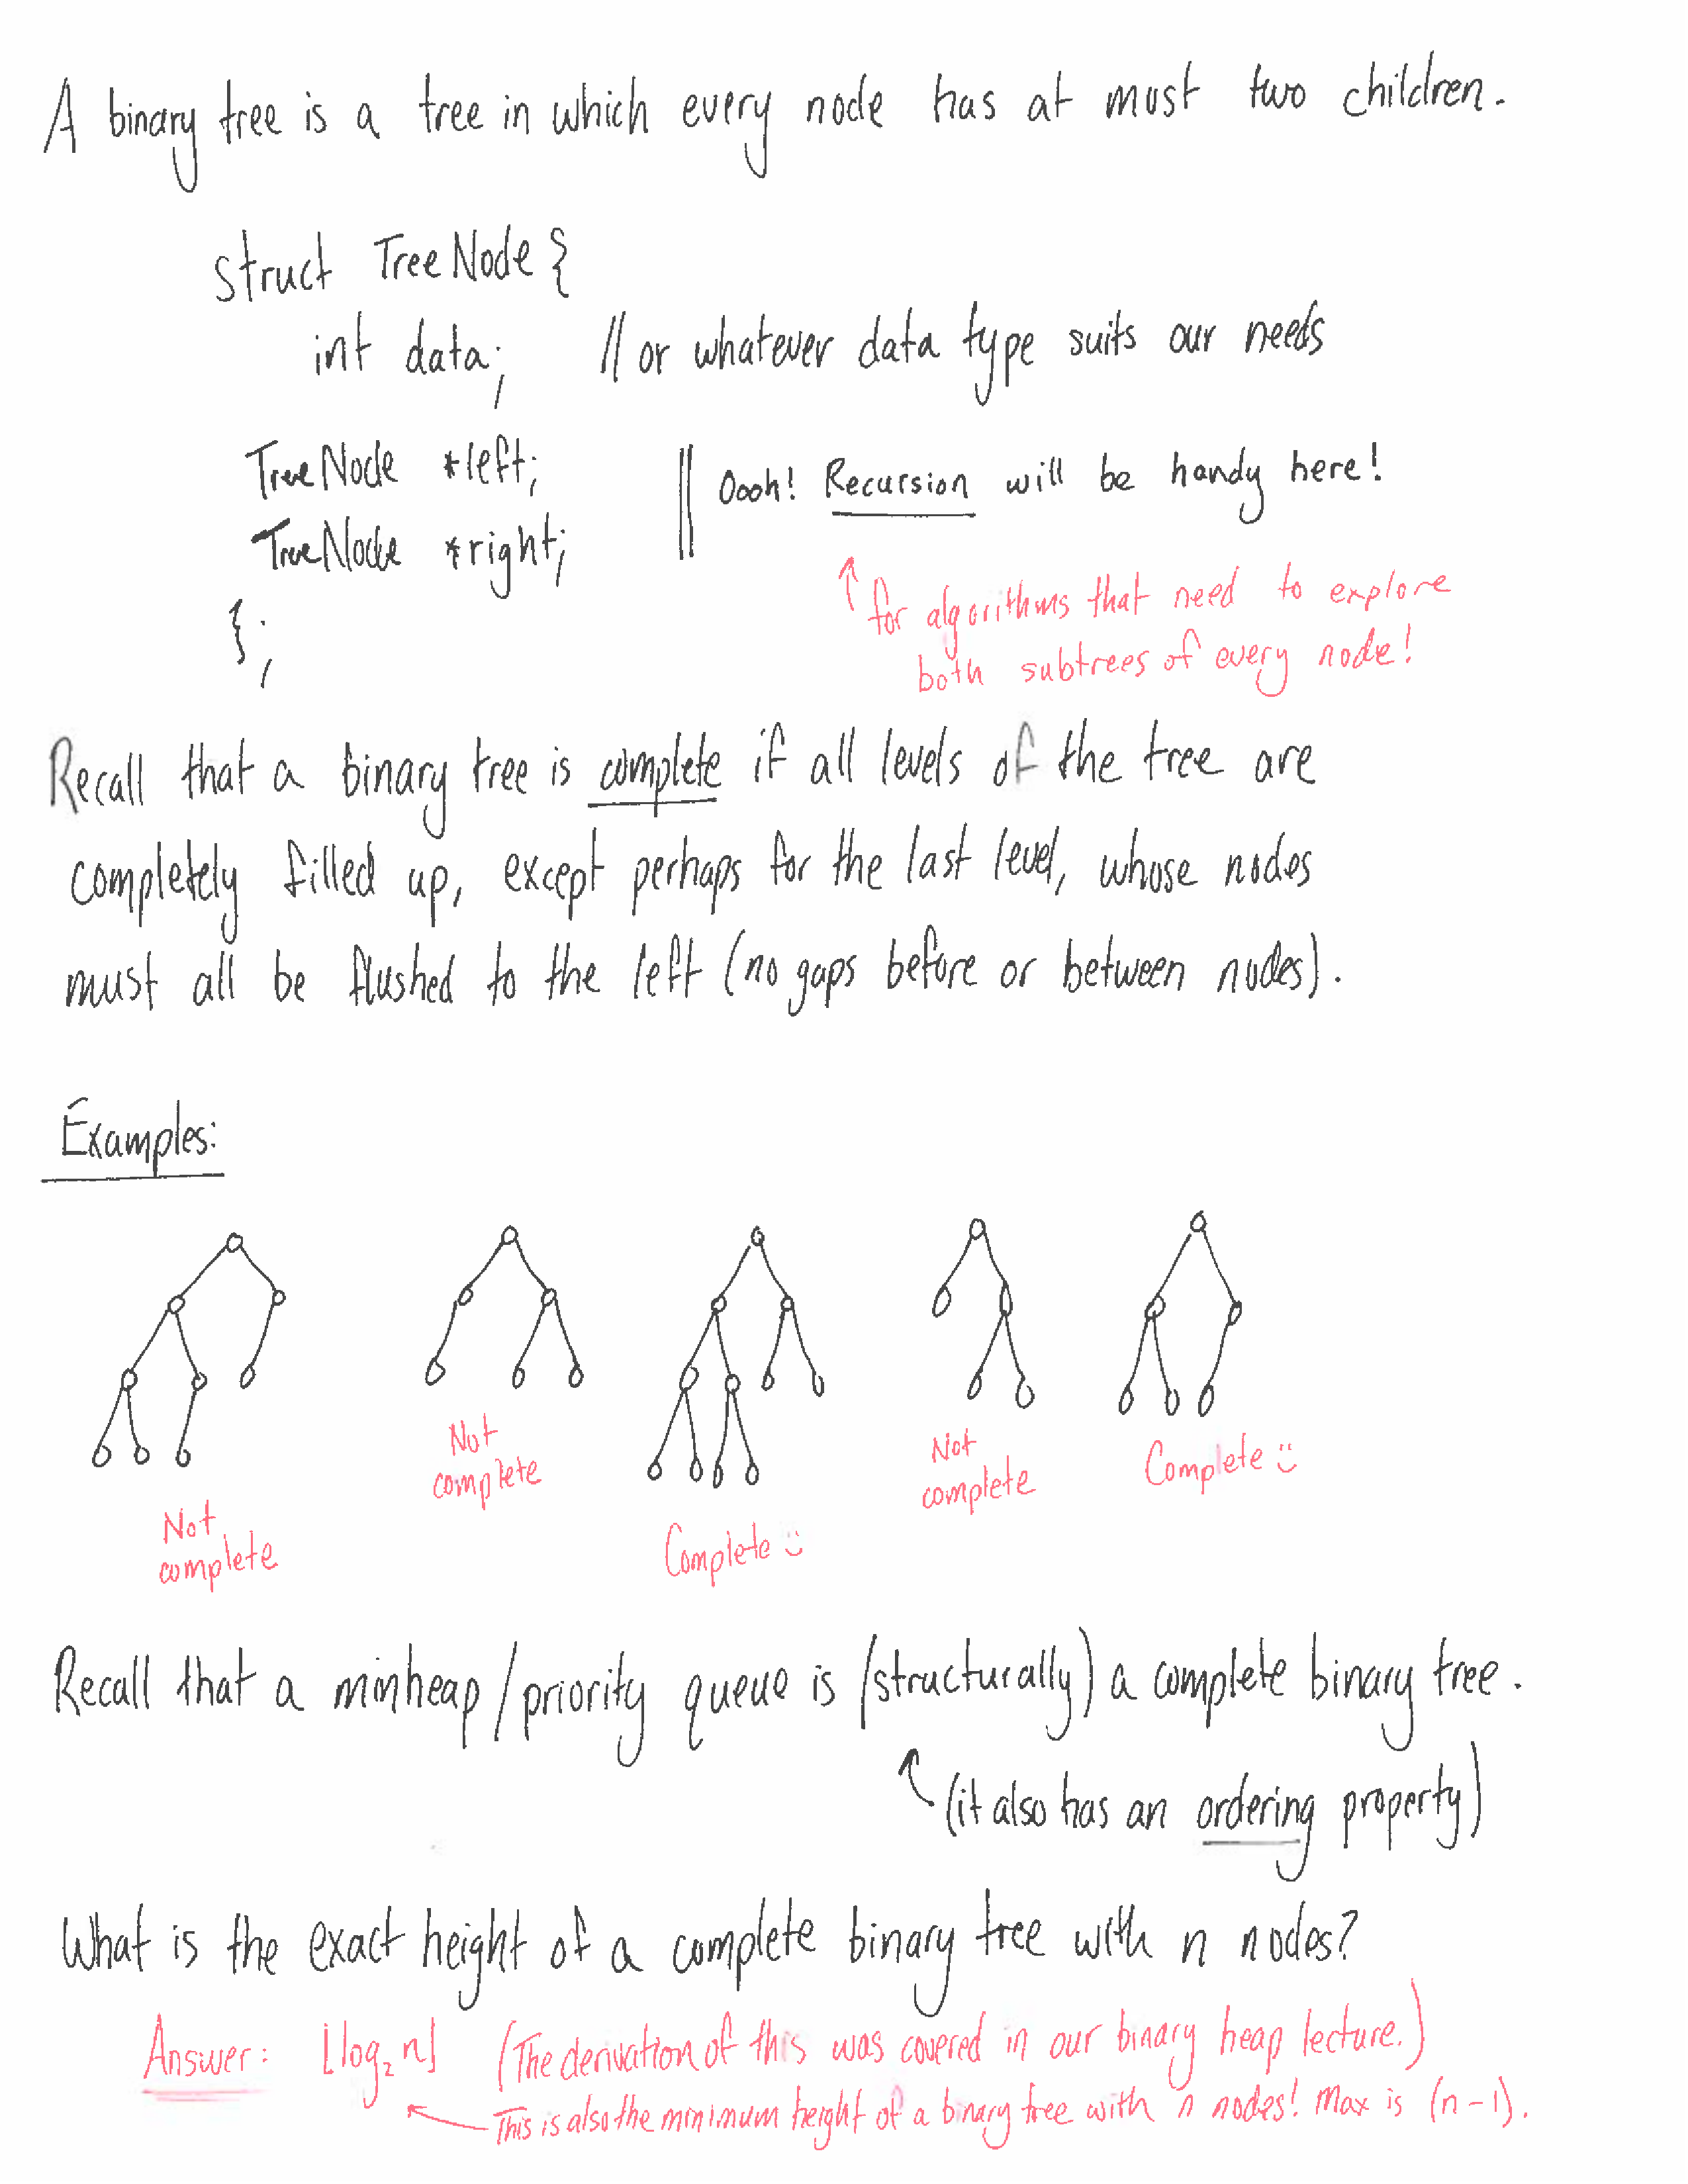 A binary tree is a tree in which every node has at most two children.
struct TreeNode {
int data; // or whatever data type suits our needs
TreeNode *left; // Oooh! Recursion will be handy here!
TreeNode *right;
↑ for algorithms that need to explore
both subtrees of every node!
};
Recall that a binary tree is complete if all levels of the tree are
completely filled up, except perhaps for the last level, whose nodes
must all be flushed to the left (no gaps before or between nodes).
Examples:
Not
complete
Not
complete
Complete :)
Not
complete
Complete :)
Recall that a minheap/priority queue is (structurally) a complete binary tree.
(it also has an ordering property)
What is the exact height of a complete binary tree with n nodes?
Answer: ⌊log₂ n⌋ (The derivation of this was covered in our binary heap lecture.)
This is also the minimum height of a binary tree with n nodes! Max is (n-1).